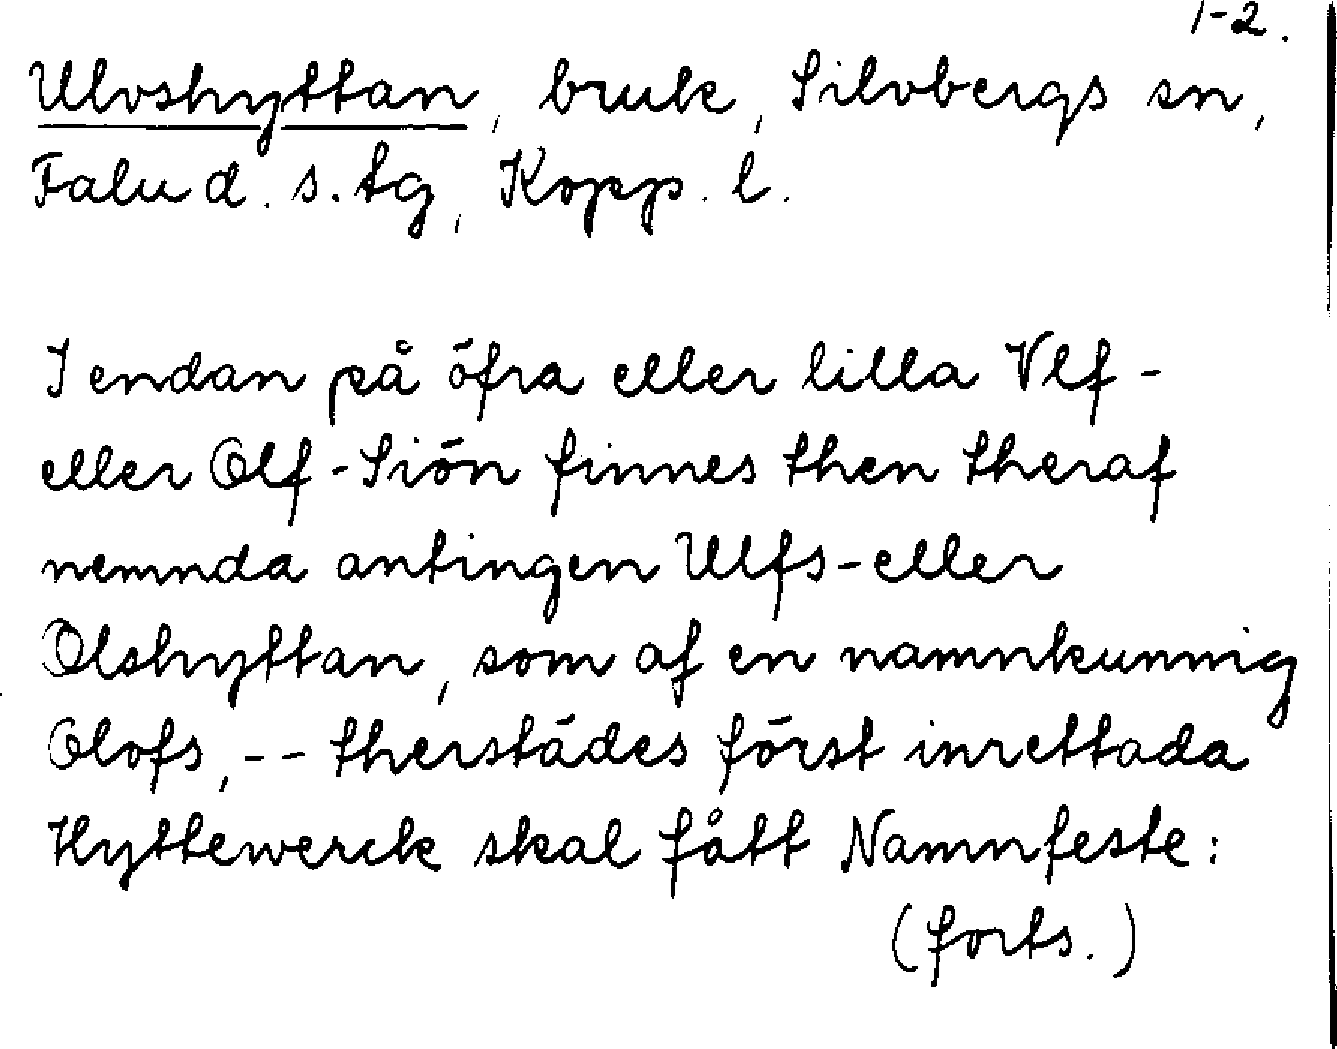 1-2.
Ulvshyttan, bruk, Silvbergs sn,
Falu d. s. tg, Kopp. l.
I endan på öfra eller lilla Vlf-
eller Olf-Siön finnes then theraf
nemnda antingen Ulfs-eller
Olshyttan, som af en namnkunnig
Olofs,-- therstädes först inrettada
Hyttewerck skal fått Namnfeste:
(forts.)